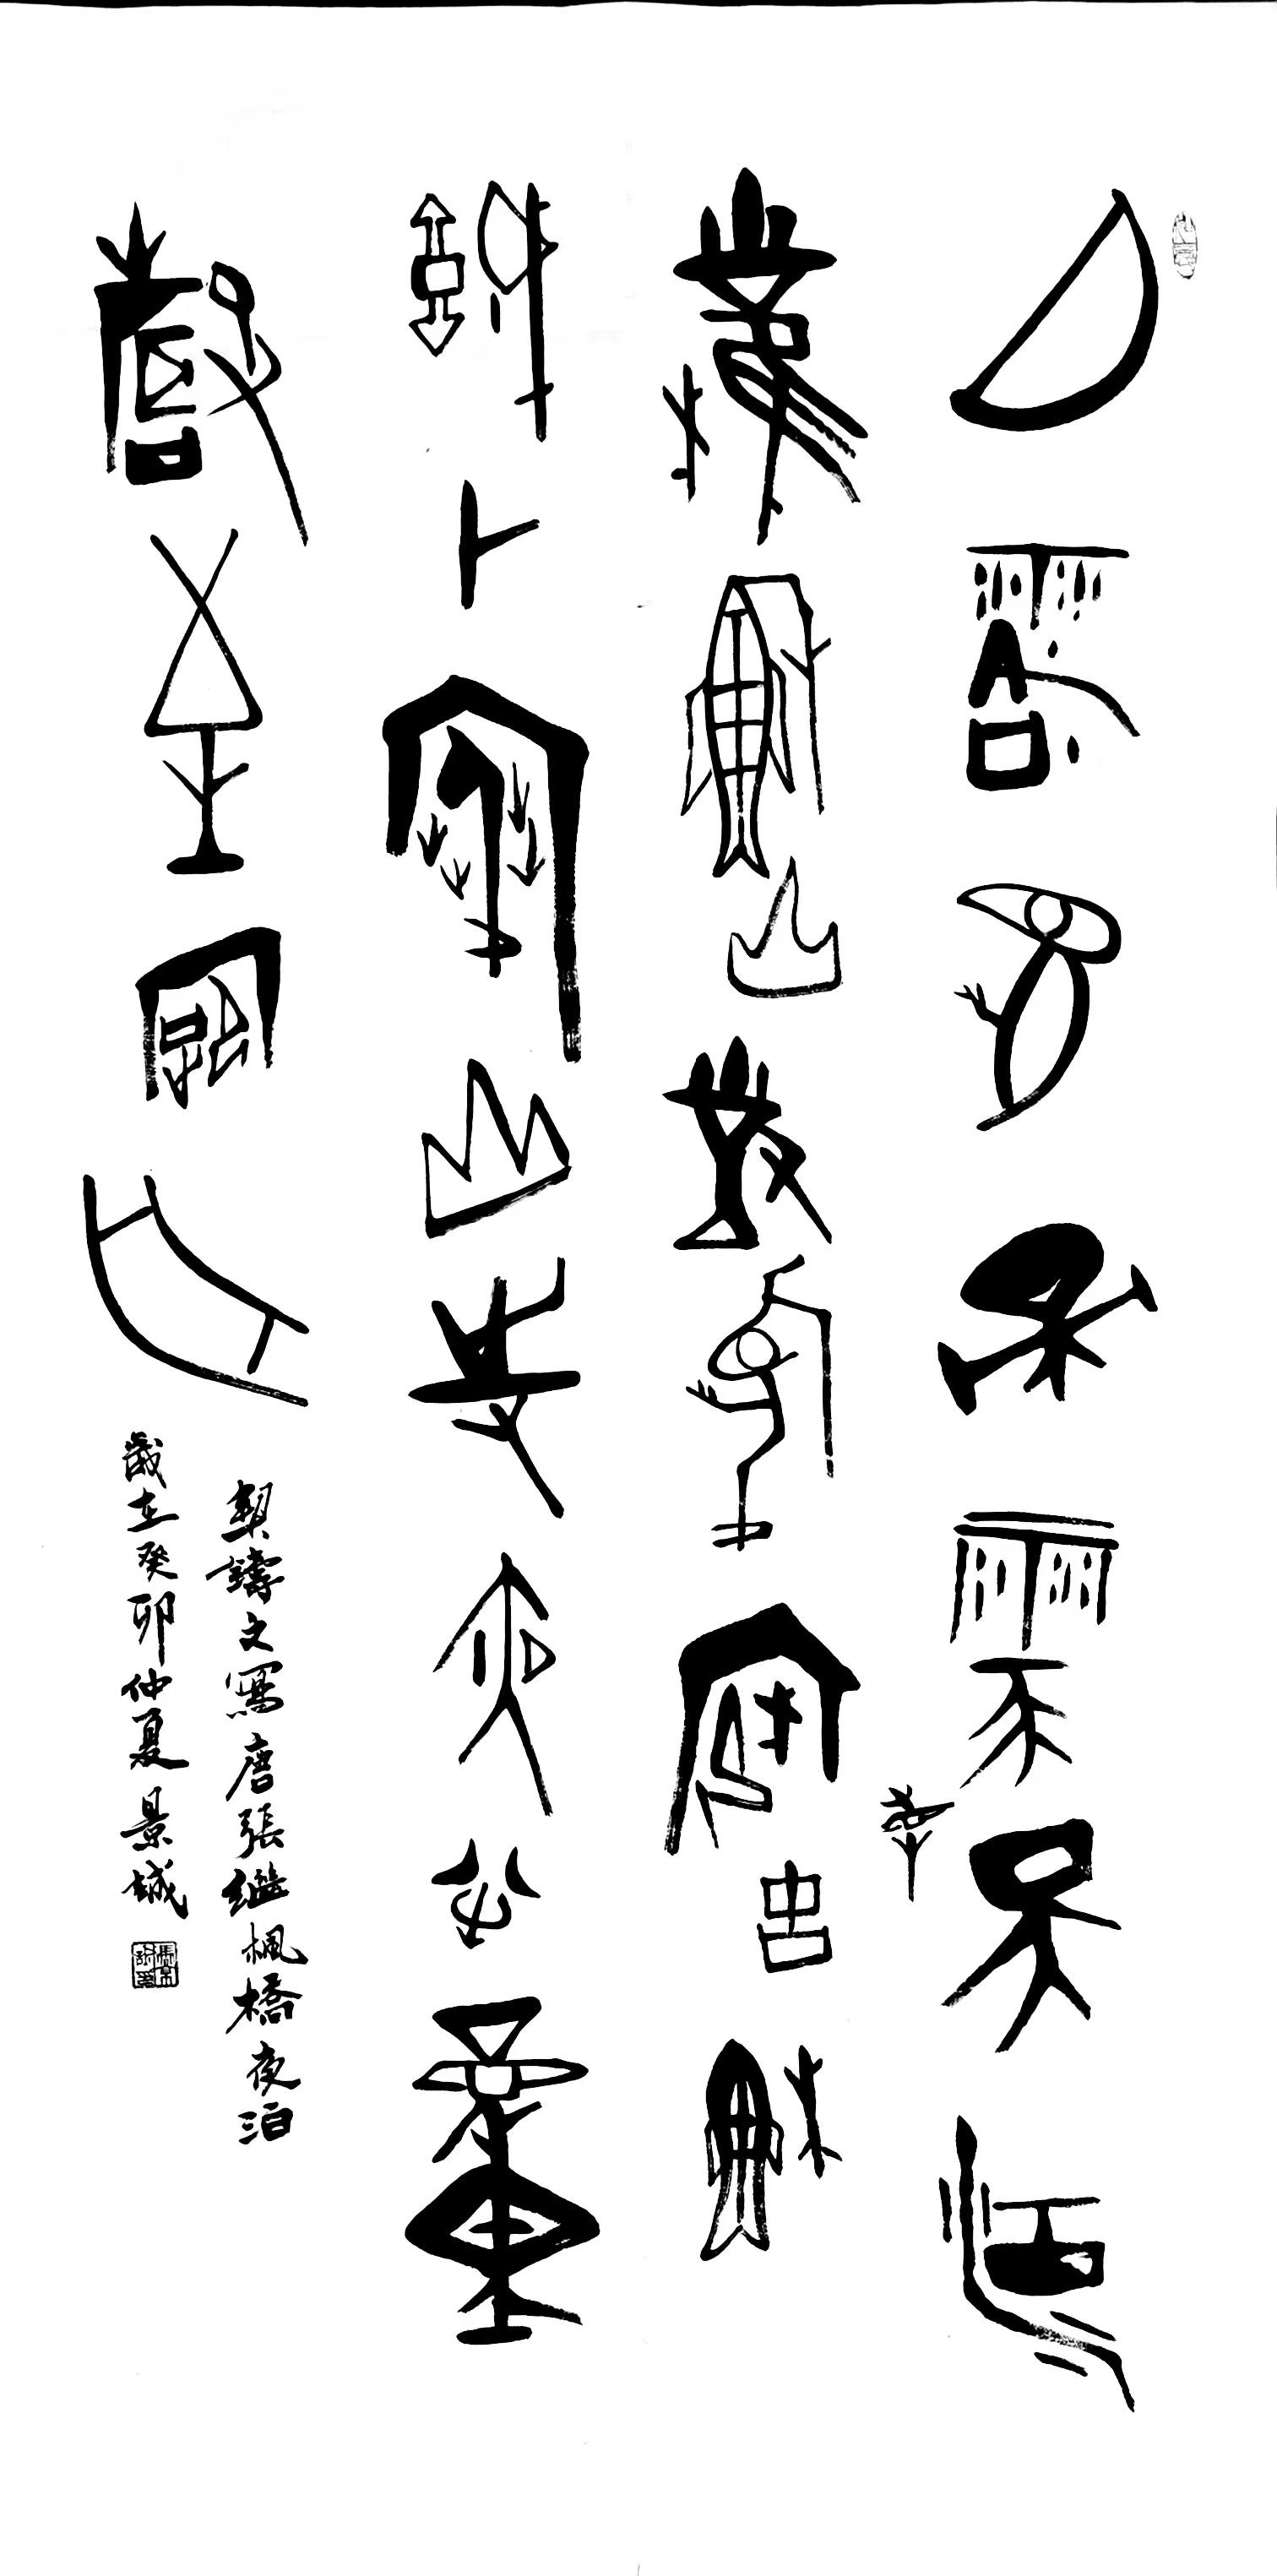 月落烏啼霜滿天江
楓漁火對愁眠姑蘇
城外寒山寺夜半鐘
聲到客船
契鑄文寫唐張繼楓橋夜泊
歲在癸卯仲夏景城